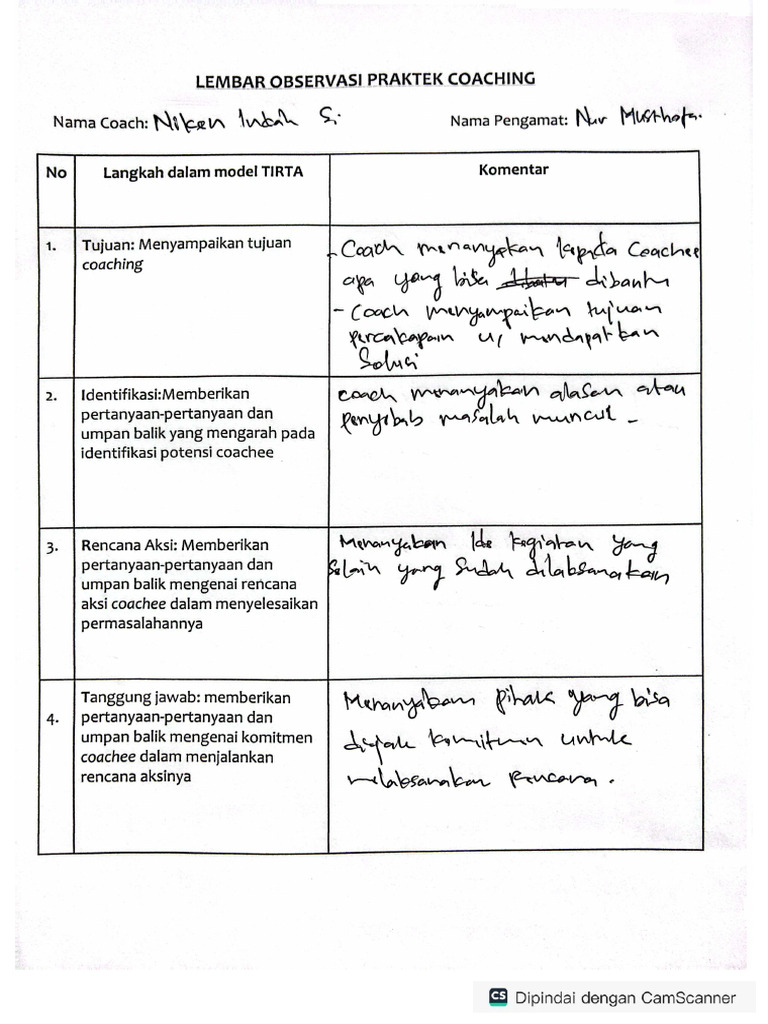 LEMBAR OBSERVASI PRAKTEK COACHING
Nama Coach: Niken Indah S. Nama Pengamat: Nur Musthofa.
No Langkah dalam model TIRTA Komentar
1. Tujuan: Menyampaikan tujuan
coaching
- Coach menanyakan kepada Coachee
apa yang bisa dibantu
- Coach menyampaikan tujuan
percakapain u/ mendapatkan
Solusi
2. Identifikasi:Memberikan
pertanyaan-pertanyaan dan
umpan balik yang mengarah pada
identifikasi potensi coachee
coach menanyakan alasan atau
penyebab masalah muncul -
3. Rencana Aksi: Memberikan
pertanyaan-pertanyaan dan
umpan balik mengenai rencana
aksi coachee dalam menyelesaikan
permasalahannya
Menanyakan Ide kegiatan yang
Selain yang sudah dilaksanakan
4. Tanggung jawab: memberikan
pertanyaan-pertanyaan dan
umpan balik mengenai komitmen
coachee dalam menjalankan
rencana aksinya
Menanyakan pihak yang bisa
diajak komitmen untuk
melaksanakan Rencana.
CS Dipindai dengan CamScanner